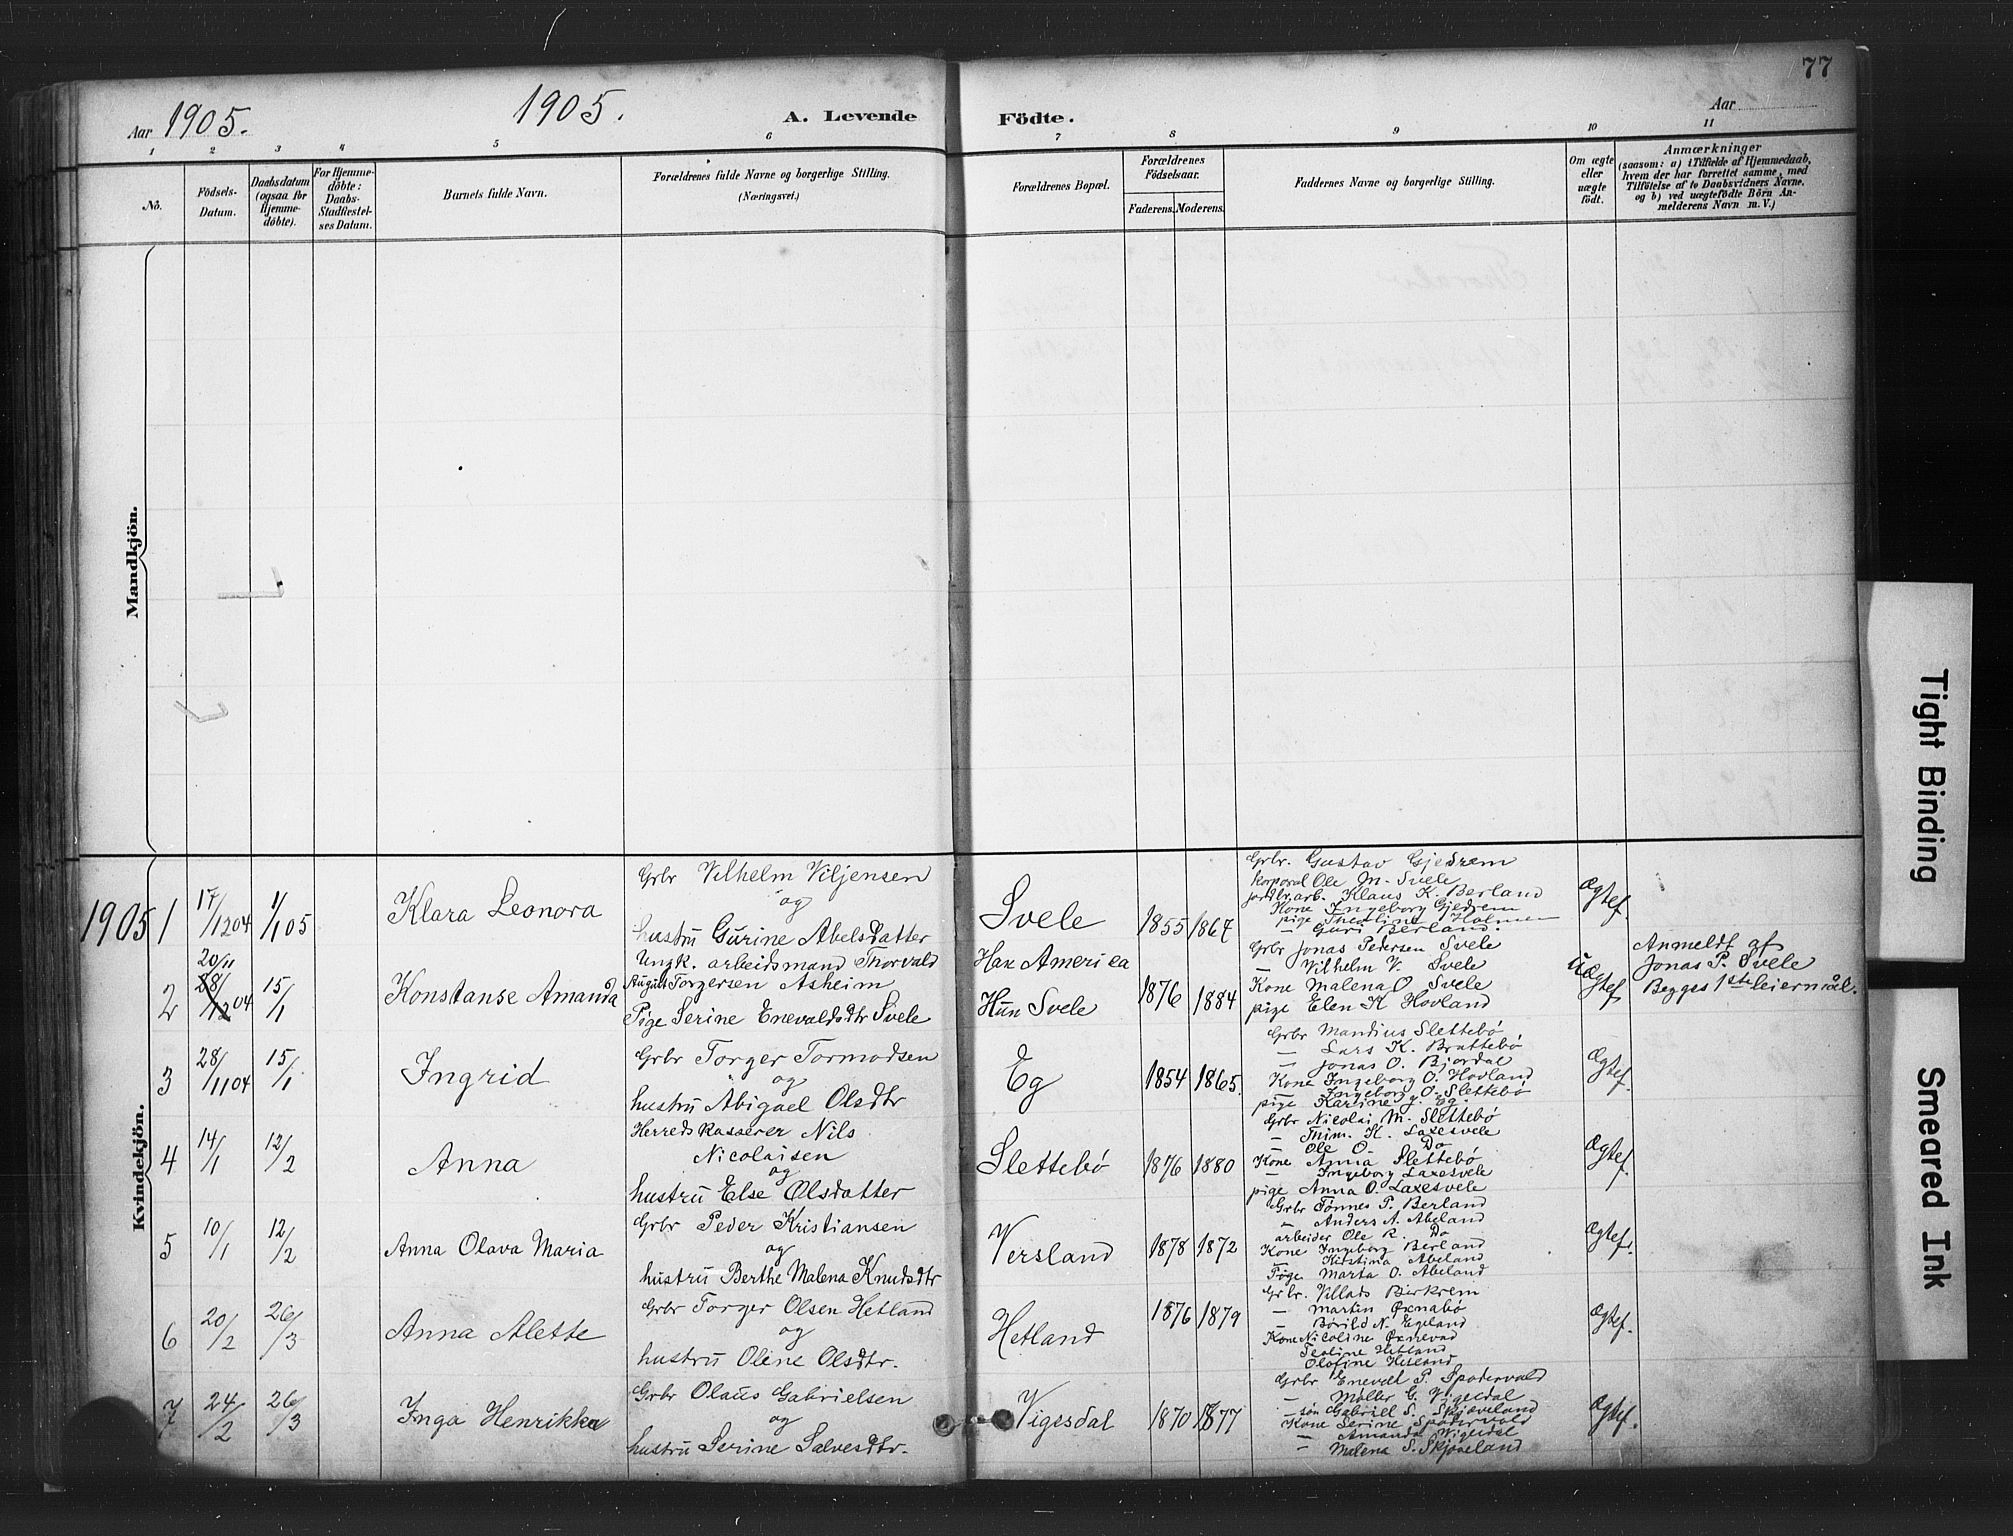 77
Aar 1905.
1905.
A. Levende
Födte.
Aar
1 2 3 4 5 6 7 8 9 10 11
No.
Födsels-
Datum.
Daabsdatum
(ogsaa for
Hjemme-
döbte).
For Hjemme-
döbte:
Daabs-
Stadfæstel-
ses Datum.
Barnets fulde Navn.
Forældrenes fulde Navne og borgerlige Stilling.
(Næringsvei.)
Forældrenes Bopæl.
Forældrenes
Födselsaar.
Faderens.
Moderens.
Faddernes Navne og borgerlige Stilling.
Om ægte
eller
uægte
födt.
Anmærkninger
(saasom: a) i Tilfælde af Hjemmedaab,
hvem der har forrettet samme, med
Tilföielse af to Daabsvidners Navne,
og b) ved uægtefödte Börn An-
melderens Navn m. V.)
Mandkjön.
Kvindekjön.
1905 1
17/12 04
1/1 05
Klara Leonora
Grbr Vilhelm Viljensen
og
hustru Gurine Abelsdatter
Svele
1855 1864
Grbr. Gustav Gjedrem
korporal Ole M. Svele
jordbr.arb. Klaus K. Berland
Kone Ingeborg Gjedrem
pige Thealine Holmen
— Guri Berland.
Ægtef.
2
20/11
28/12 04
15/1
Konstanse Amanda
Ungk. arbeidsmand Thorvald
August Torgersen Asheim
og
Pige Serine Enevaldsdtr Svele
Han America
Hun Svele
1876 1884
Grbr Jonas Pedersen Svele
— Vilhelm V. Svele
Kone Malena O Svele
pige Elen K Hovland
Uægtef
Anmeldt af
Jonas P. Svele
Begges 1ste leiermål.
3
28/11 04
15/1
Ingrid
Grbr Torger Tormodsen
og
hustru Abigael Olsdtr
Eg
1854 1865.
Grbr Mandius Slettebö
— Lars K. Brattebö
— Jonas O. Bjordal
Kone Ingeborg O. Hovland
— Ingeborg O. Slettebö
pige Karine J. Eg.
Ægtef.
4
14/1
12/2
Anna
Herreds kasserer Nils
Nicolaisen
og
hustru Else Olsdatter
Slettebö
1876 1880
Grbr Nicolai M. Slettebö
— Thim. K. Laxesvele
— Ole O. Do
Kone Anna Slettebö
— Ingeborg Laxesvele
pige Anna O. Laxesvele
Ægtef.
5
10/1
12/2
Anna Olava Maria
Grbr Peder Kristiansen
og
hustru Berthe Malena Knudsdtr
Versland
1878 1872
Grbr Tönnes P. Berland
„ Anders A. Abeland
arbeider Ole R. Do
Kone Ingeborg Berland
— Kirstina Abeland
Pige Marta O. Abeland
Ægtef.
6
20/2
26/3
Anna Alette
Grbr Torger Olsen Hetland
og
hustru Oline Olsdtr.
Hetland
1876 1879
Grbr. Villads Birkrem
— Martin Øxnabö
— Börild N. Egeland
Kone Nicoline Øxnevad
Tealine Hetland
Olofine Hetland
Ægtef.
7
24/2
26/3
Inga Henrikka
Grbr Olaus Gabrielsen
og
hustru Serine Salvesdtr.
Vigesdal
1870 1877
Grbr Enevald P. Spödervold
— Möller G. Vigesdal
— sön Gabriell S. Skjæveland
Kone Serine Spödervold
— Amanda Vigesdal
— Malena S. Skjæveland
Ægtef.
Tight Binding
Smeared Ink